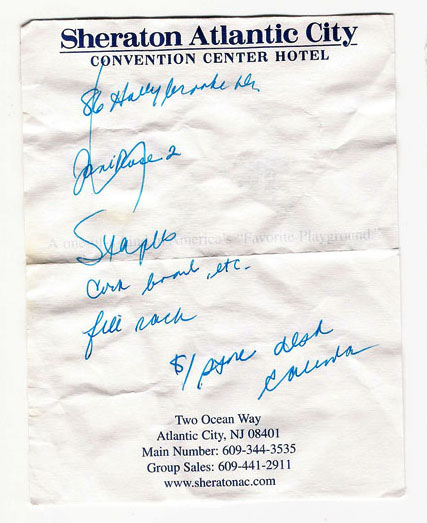 Sheraton Atlantic City
CONVENTION CENTER HOTEL
86 Hollybrooke Dr
2
Staples
Cork board, etc.
file rack
$/ phone desk
calendar
America's "Favorite Playground"
Two Ocean Way
Atlantic City, NJ 08401
Main Number: 609-344-3535
Group Sales: 609-441-2911
www.sheratonac.com